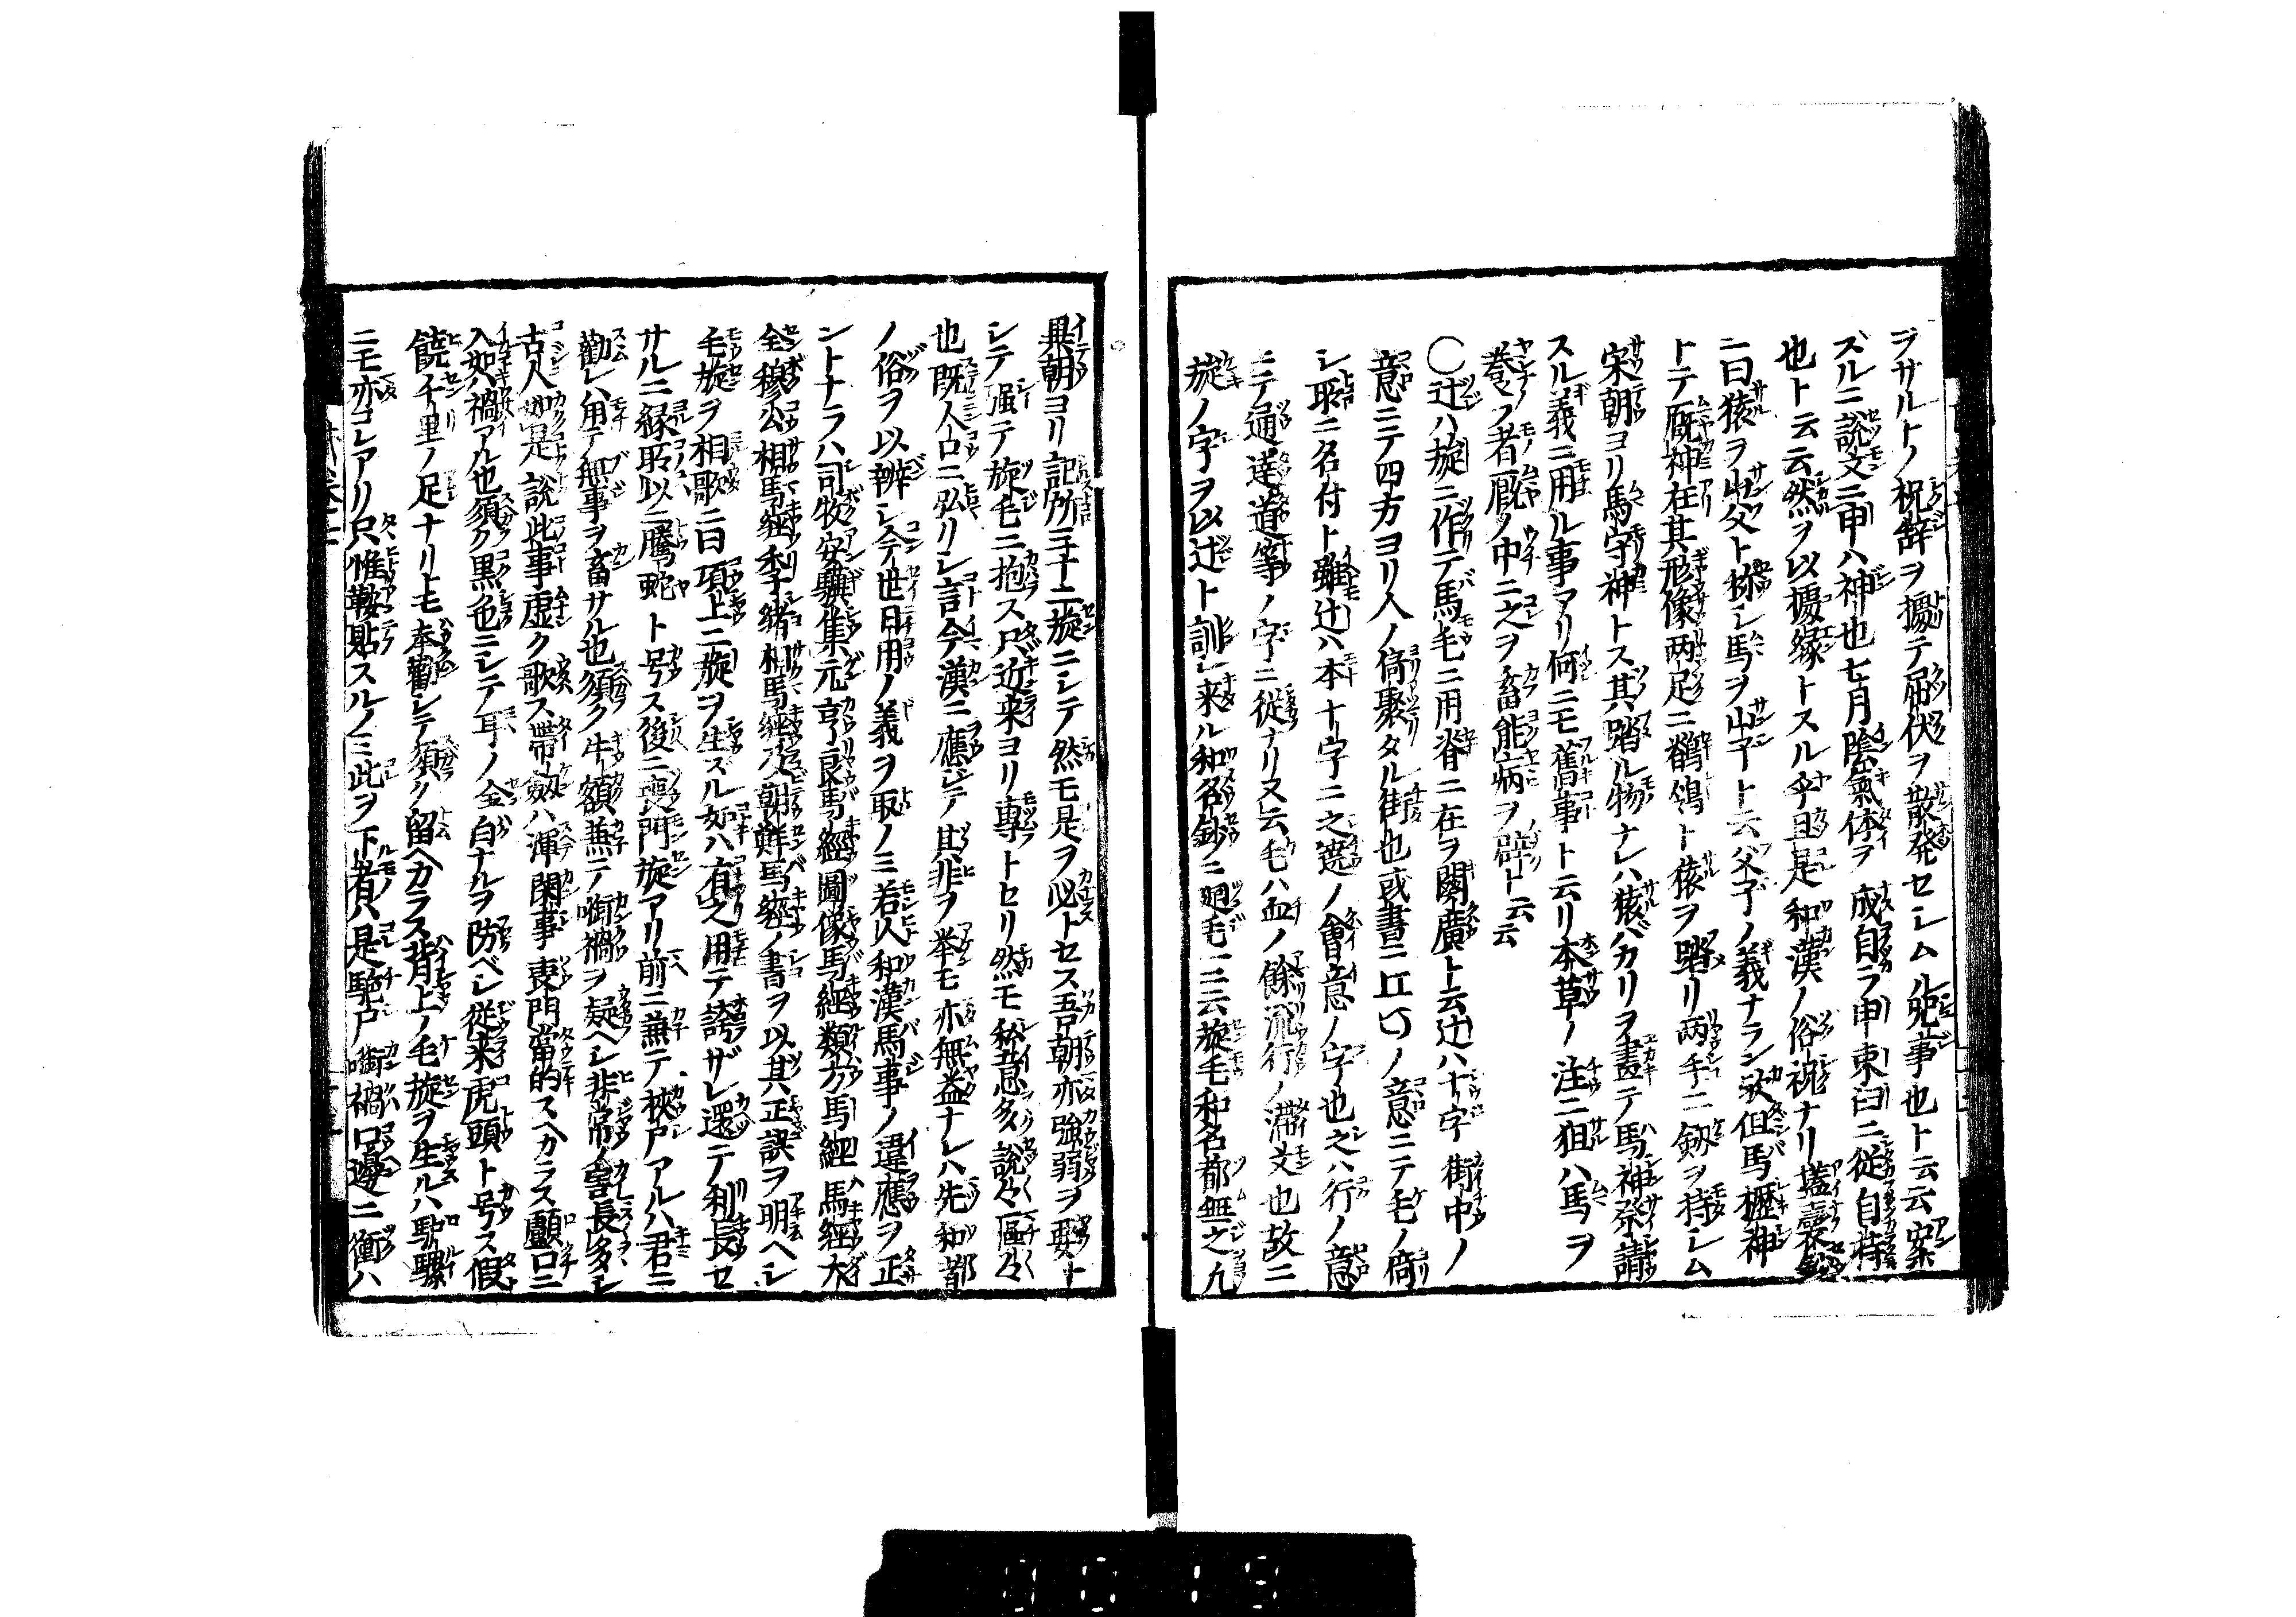 ヲサルトノ祝辞ヲ據テ屈伏ヲ散発セシム咒事也ト云云案
ズルニ説文ニ申ハ神也七月陰氣体ヲ成自ラ申束臼ニ従自持
也ト云云然ヲ以擾縁トスル乎且是和漢ノ俗説ナリ壒囊鈔
ニ曰猿ヲ山父ト称シ馬ヲ山子ト云父子ノ義ナラン欤但馬櫪神
トテ厩神在其形像両足ニ鶺鴒ト猿ヲ踏リ両手ニ釼ヲ持シム
宋朝ヨリ馬守神トス其踏ル物ナレハ猿バカリヲ畫テ馬神祭請
スル義ニ用ル事アリ何ニモ舊事ト云リ本草ノ注ニ狙ハ馬ヲ
養フ者厩ノ中ニ之ヲ畜能病ヲ辟ト云云
〇辻ハ旋ニ作テ馬毛ニ用脊ニ在ヲ關廣ト云辻ハ十字街中ノ
意ニテ四方ヨリ人ノ倚聚タル街也或書ニノ意ニテ毛ノ倚
シ聚ニ名付ト雖辻ハ本十字ニ之遶ノ會意ノ字也之ハ行ノ意
ニテ通達道等ノ字ニ從ナリ又云毛ハ血ノ餘流行ノ滞文也故ニ
旋ノ字ヲ以辻ト訓シ来ル和名鈔ノニ廻毛ニ云旋毛和名都無之九
異朝ヨリ記所三十二旋ニシテ然モ是ヲ必トセス吾朝亦強弱ヲ要ト
シテ强テ旋毛ニ抱ス只近来ヨリ專トセリ然モ秘慈多説々區々
也既人口ニ弘リシ言今漢ニ應シテ其非ヲ挙モ亦無益ナレハ先和都
ノ俗ヲ以辨シ今世日用ノ義ヲ取ノミ若人和漢馬事ノ違應ヲ正
ントナラハ司牧安驥集元亨良馬經圖像馬經類方馬經馬經大
全穆公相馬經李緒相馬經及朝鮮馬經ノ書ヲ以其正誤ヲ明ヘシ
毛旋ヲ相歌ニ曰項上ニ旋ヲ生スル如ハ有之用テ誇ザレ還テ利長セ
サルニ縁所以ニ騰蛇ト号ス後ニ喪門旋アリ前ニ兼テ挾尸アルハ君ニ
勸レハ用テ無事ヲ畜サル也須ク牛額兼テ啣禍ヲ疑ヘシ非常ノ害長多シ
古人如是説此事虚ク歌ス帶劔ハ渾閑事喪門當的スヘカラス顱口ニ
入如ハ禍アル也須ク黒色ニシテ耳ノ全白ナルヲ防ベシ従来虎頭ト号ス假
饒千里ノ足ナリトモ奉勸シテ須ク留ヘカラス背上ノ毛旋ヲ生ルハ驢騾
ニモ亦コレアリ只惟鞍貼スルノミ此ヲ下者ハ是駞尸啣禍口邊ニ衝ハ